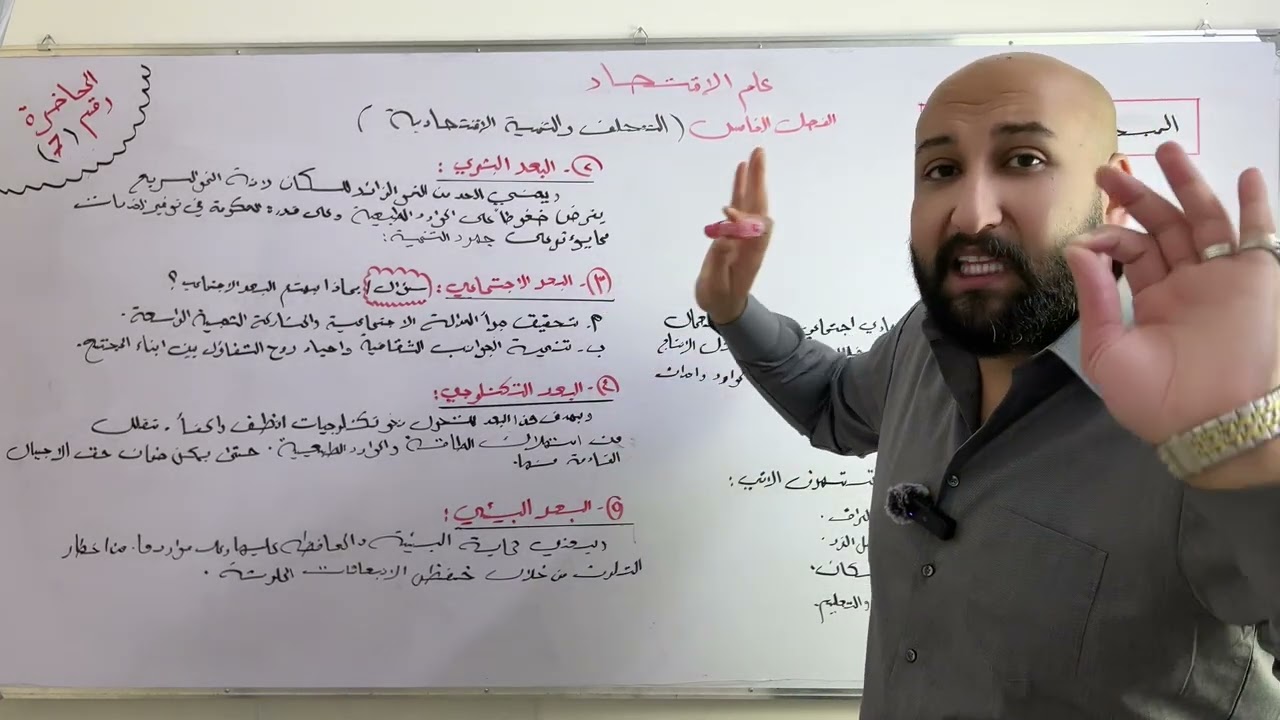 علم الاقتصاد
الفصل الخامس (التخلف والتنمية الاقتصادية)
المحاضرة
رقم (7)
٢- البعد البشري :
ويعني الحد من النمو الزائد للسكان
يفرض ضغوطاً على الموارد الطبيعية وعلى قدرة الحكومة في توفير الخدمات
جهود التنمية :
٣- البعد الاجتماعي : سؤال / بماذا يهتم البعد الاجتماعي ؟
أ. تحقيق مبدأ العدالة الاجتماعية والمشاركة الشعبية الواسعة .
ب- تنمية الجوانب الثقافية واحياء روح التفاؤل بين ابناء المجتمع .
٤- البعد التكنلوجي :
ويهدف هذا البعد للتحول نحو تكنلوجيات انظف
من استهلاك الطاقة والموارد الطبيعية . حتى يمكن ضمان حق الاجيال
القادمة منها .
٥- البعد البيئي :
ويعني حماية البيئة والمحافظة عليها وعلى مواردها . من اخطار
التلوث من خلال خفض الانبعاثات الملوثة .
اجتماعي
الانتاج
الاتي :
والتعليم .